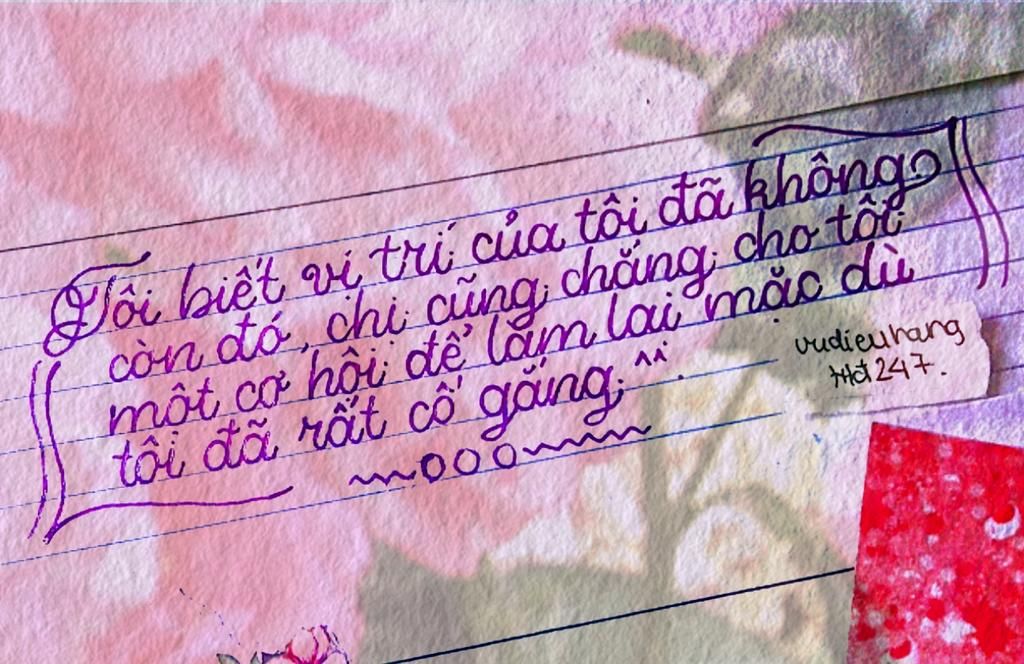 Tôi biết vị trí của tôi đã không
còn đó, chị cũng chẳng cho tôi
một cơ hội để làm lại mặc dù
tôi đã rất cố gắng ^^.
vudieuhang
Hđ247.